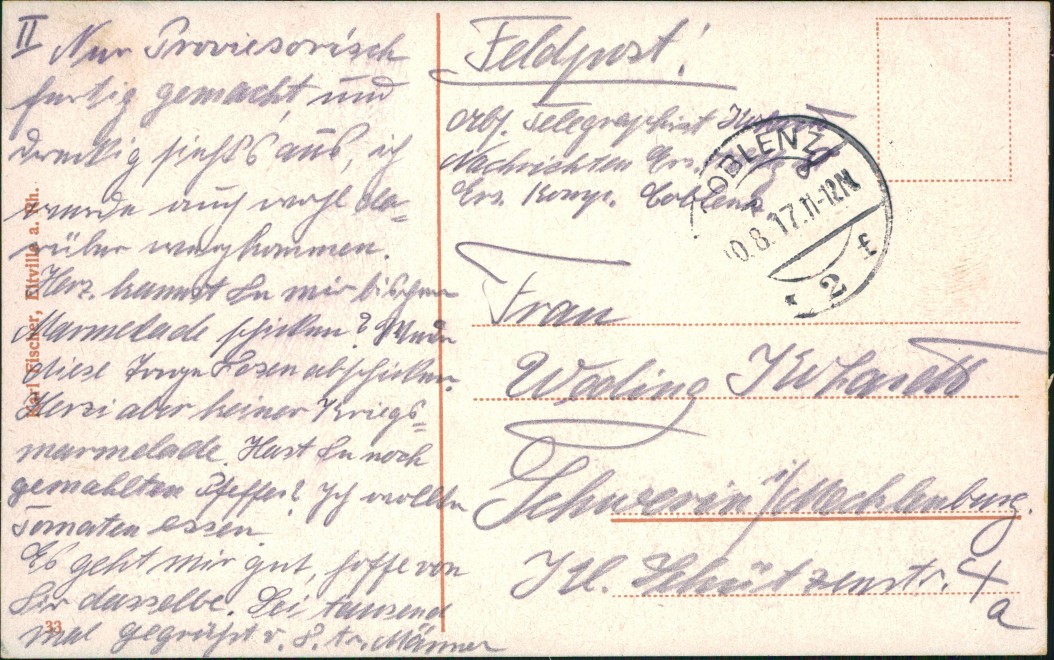 II Nur Proviesorisch
fertig gemacht und
dreckig siehts aus, ich
werde auch wohl da=
rüber wegkommen.
Herz. kannst Du mir bischen
Marmelade schicken?
diese Tage abschicken.
Herzi aber keiner Kriegs=
marmelade. Hast Du noch
gemahlten Pfeffer? Ich wollte
Tomaten essen.
Es geht mir gut, hoffe von
Dir dasselbe. Sei tausend
mal gegrüßt v. d. tr. Männe
33
Karl Fischer, Eltville a. Rh.
Feldpost!
Abs. Telegraphist
Nachrichten Ers.
Ers. Komp. Coblenz
COBLENZ
0.8.17.11-12N.
* 2 f
Frau
Schwerin i/Mecklenburg.
Kl. Schützenstr. 4
a